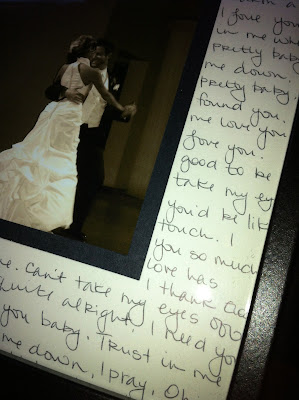 I love you
in me
pretty baby
me down.
pretty baby.
found you.
me love you
love you.
good to be
take my ey
you'd be lik
touch. I
you so much
love has
I thank
Can't take my eyes
quite alright, I need you
you baby. Trust in me
me down, I pray. Oh